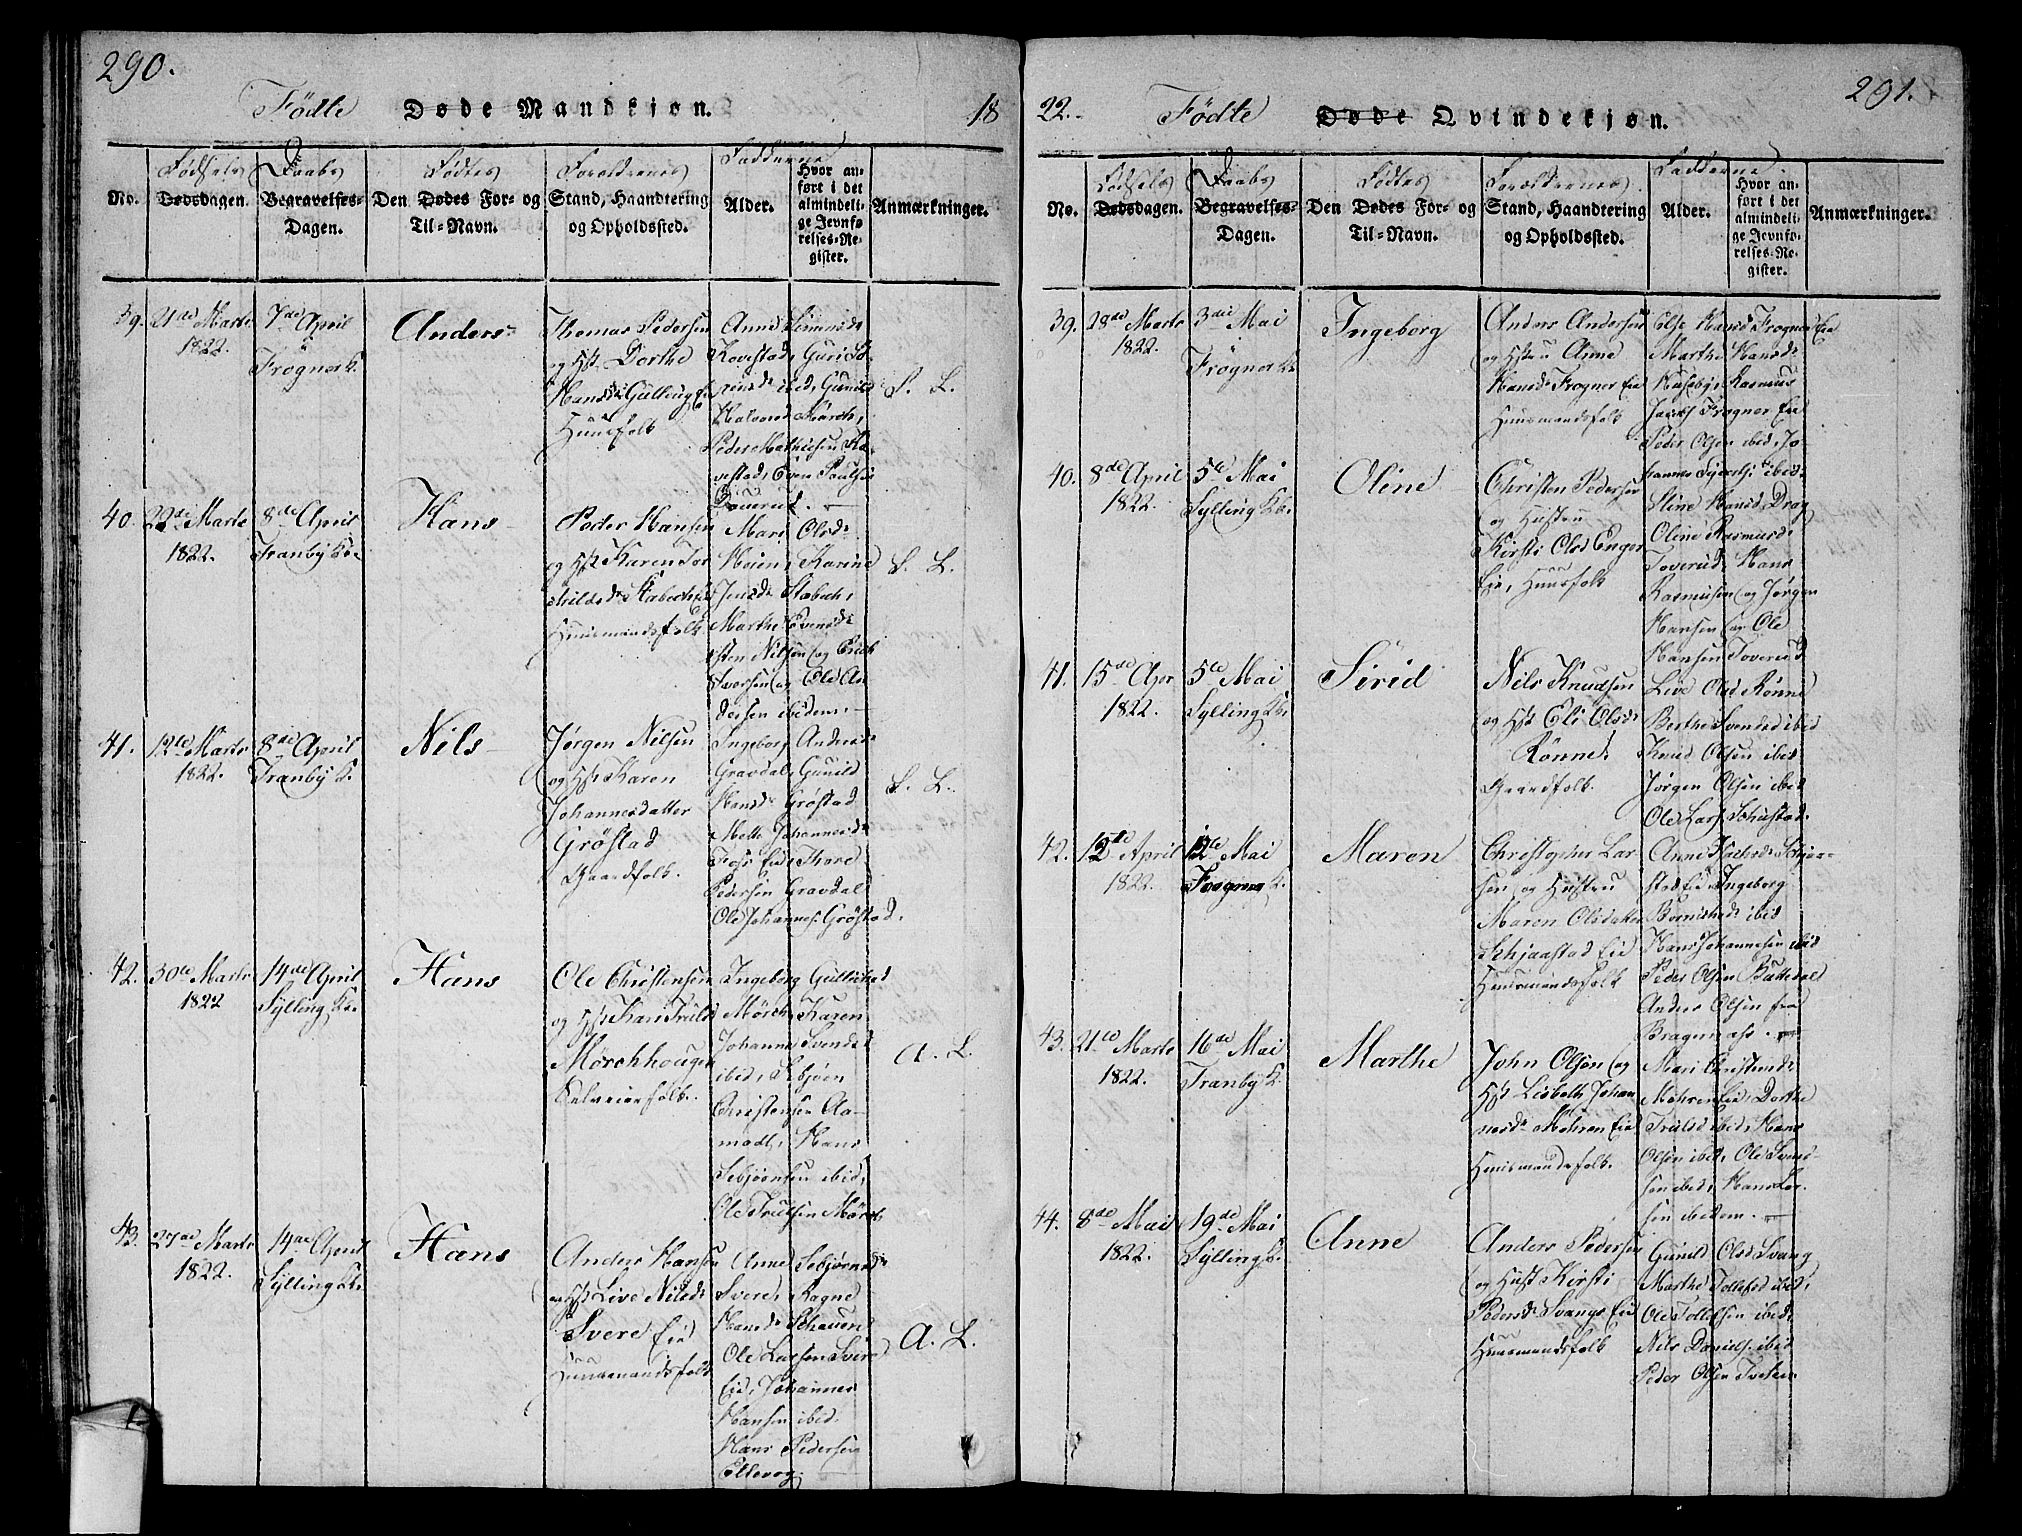 290.
Födte Døde Mandkjøn. 18
Fødsels Daabs Fødtes Foreldrenes Fadderne
No. Dødsdagen. Begravelses-Dagen. Den Dødes For- og Til-Navn. Stand, Haandtering og Opholdssted. Alder. Hvor anført i det almindelige Jevnførelses-Register. Anmærkninger.
39. 21de Marts 1822. 7de April Frogner K. Anders
Thomas Pedersen
og Hst Dorthe
Hansd: Gulling Eie
Huusfolk
Anne Simensd:
Kovestad, Guri
ibid, Gunild
Halvorsd Mørch,
Peder Mathiesen Ko-
vestad, Even Paulsen
S. L.
40. 1822. 8de April Tranby K. Hans
Peder Hansen
og Hst Karen Tor-
Stabechs
Huusmandsfolk
Mari Olsd:
Heien, Karine
Jensd: Stabech,
Marthe Evensd:
Nilsen og Erich
Iversen og Ole An-
dersen ibidem.
S. L.
41. 12te Marts 1822. 8de April Tranby K. Nils
Jørgen Nilsen
og Hst Karen
Johannesdatter
Gröstad
Gaardfolk.
Ingeborg Andersd:
Gravdal, Gunild
Hansd: Gröstad
Johannesd:
Foss Eie, Thore
Pedersen Gravdal
Ole Johannes: Gröstad.
S. L.
42. 30te Marts 1822 14de April Sylling K. Hans
Ole Christensen
og Hst Kari Trulsd
Mörchhougen
Selveierfolk.
Ingeborg Gullichsd
Mörch, Karen
Johanne Svendsd
ibid, Sebjörn
Christensen Aa-
modt, Hans
Sebjörnsen ibid,
Ole Trulsen Mörch
A. L.
43. 27de Marts 1822. 14de April Sylling K. Hans
Anders Hansen
og Hst Live Nilsd:
Svere Eie
Huusmandsfolk
Anne Sebjörnsd:
Svere, Ragne
Hansd:
Ole Larsen Svere
Eie, Johannes
Hansen ibid.
Hans Pedersen
Ellevog.
A. L.
22. Födte Døde Qvindekjøn. 291.
Fødsels Daabs Fødtes Foreldrenes Fadderne.
No. Dødsdagen. Begravelses-Dagen. Den Dødes For- og Til-Navn. Stand, Haandtering og Opholdssted. Alder. Hvor anført i det almindelige Jevnførelses-Register. Anmærkninger.
39. 28de Marts 1822. 3die Mai Frögner K. Ingeborg
Anders Andersen
og Hstru Anne
Hansd: Frogner Eie
Huusmandsfolk
Else Hansd Frogner Eie
Marthe Hansd:
Huseby, Rasmus
Frogner Eie
Peder Olsen ibid, Jo-
hannes ibid.
40. 8de April 1822. 5te Mai Sylling K. Oline
Christen Pedersen
og Hustru
Kirsti Olsd Enger
Eie, Huusfolk
Stine Hansd Drog
Oline Rasmusd:
Toverud, Hans
Rasmusen og Jørgen
Hansen og Ole
Hansen Toverud
41. 15de Apr 1822. 5te Mai Sylling K. Sirid
Nils Knudsen
og Hst Eli Olsd:
Rønne
Gaardfolk.
Live Olsd Rønne
Berthe Svendsd ibid
Knud Olsen ibid
Jørgen Olsen ibid
Ole Lars:
42. 12te April 1822. 12te Mai Frogner K. Maren
Christopher Lar-
sen og Hustru
Maren Olsdatter
Schjaastad Eie
Huusmandsfolk
Anne Schjaa-
stad Eie Ingeborg
ibid
Hans Johannesen ibid
Peder Olsen
Anders Olsen fra
Bragernæs.
43. 21de Marts 1822. 16de Mai Tranby K. Marthe
John Olsen og
Hst Lisbeth Johan-
nesd: Möhren Eie
Huusmandsfolk.
Mari Christensd:
Möhren Eie, Dorthe
Trulsd ibid, Hans
Olsen ibid, Ole Svend-
sen ibid, Hans Lar-
sen ibidem.
44. 8de Mai 1822. 19de Mai Sylling K. Anne
Anders Pedersen
og Hust Kirsti
Pedersd: Svangs Eie
Huusmandsfolk
Gunild Olsd Svang
Marthe Tollefsd ibid,
Ole Tollefsen ibid,
Nils Daniels: ibid
Peder Olsen Tveten